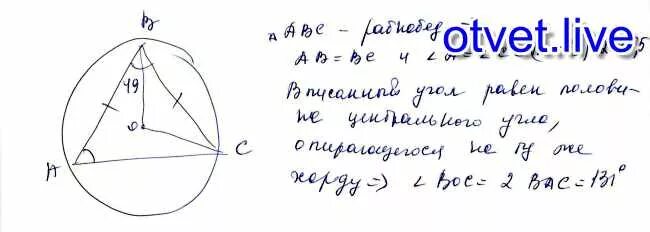 B
49
O
A
C
△ ABC – равнобед
otvet.live
AB = BC и ∠A =
Вписанный угол равен полови-
не центрального угла,
опирающегося на ту же
хорду => ∠ BOC = 2 BAC = 131°